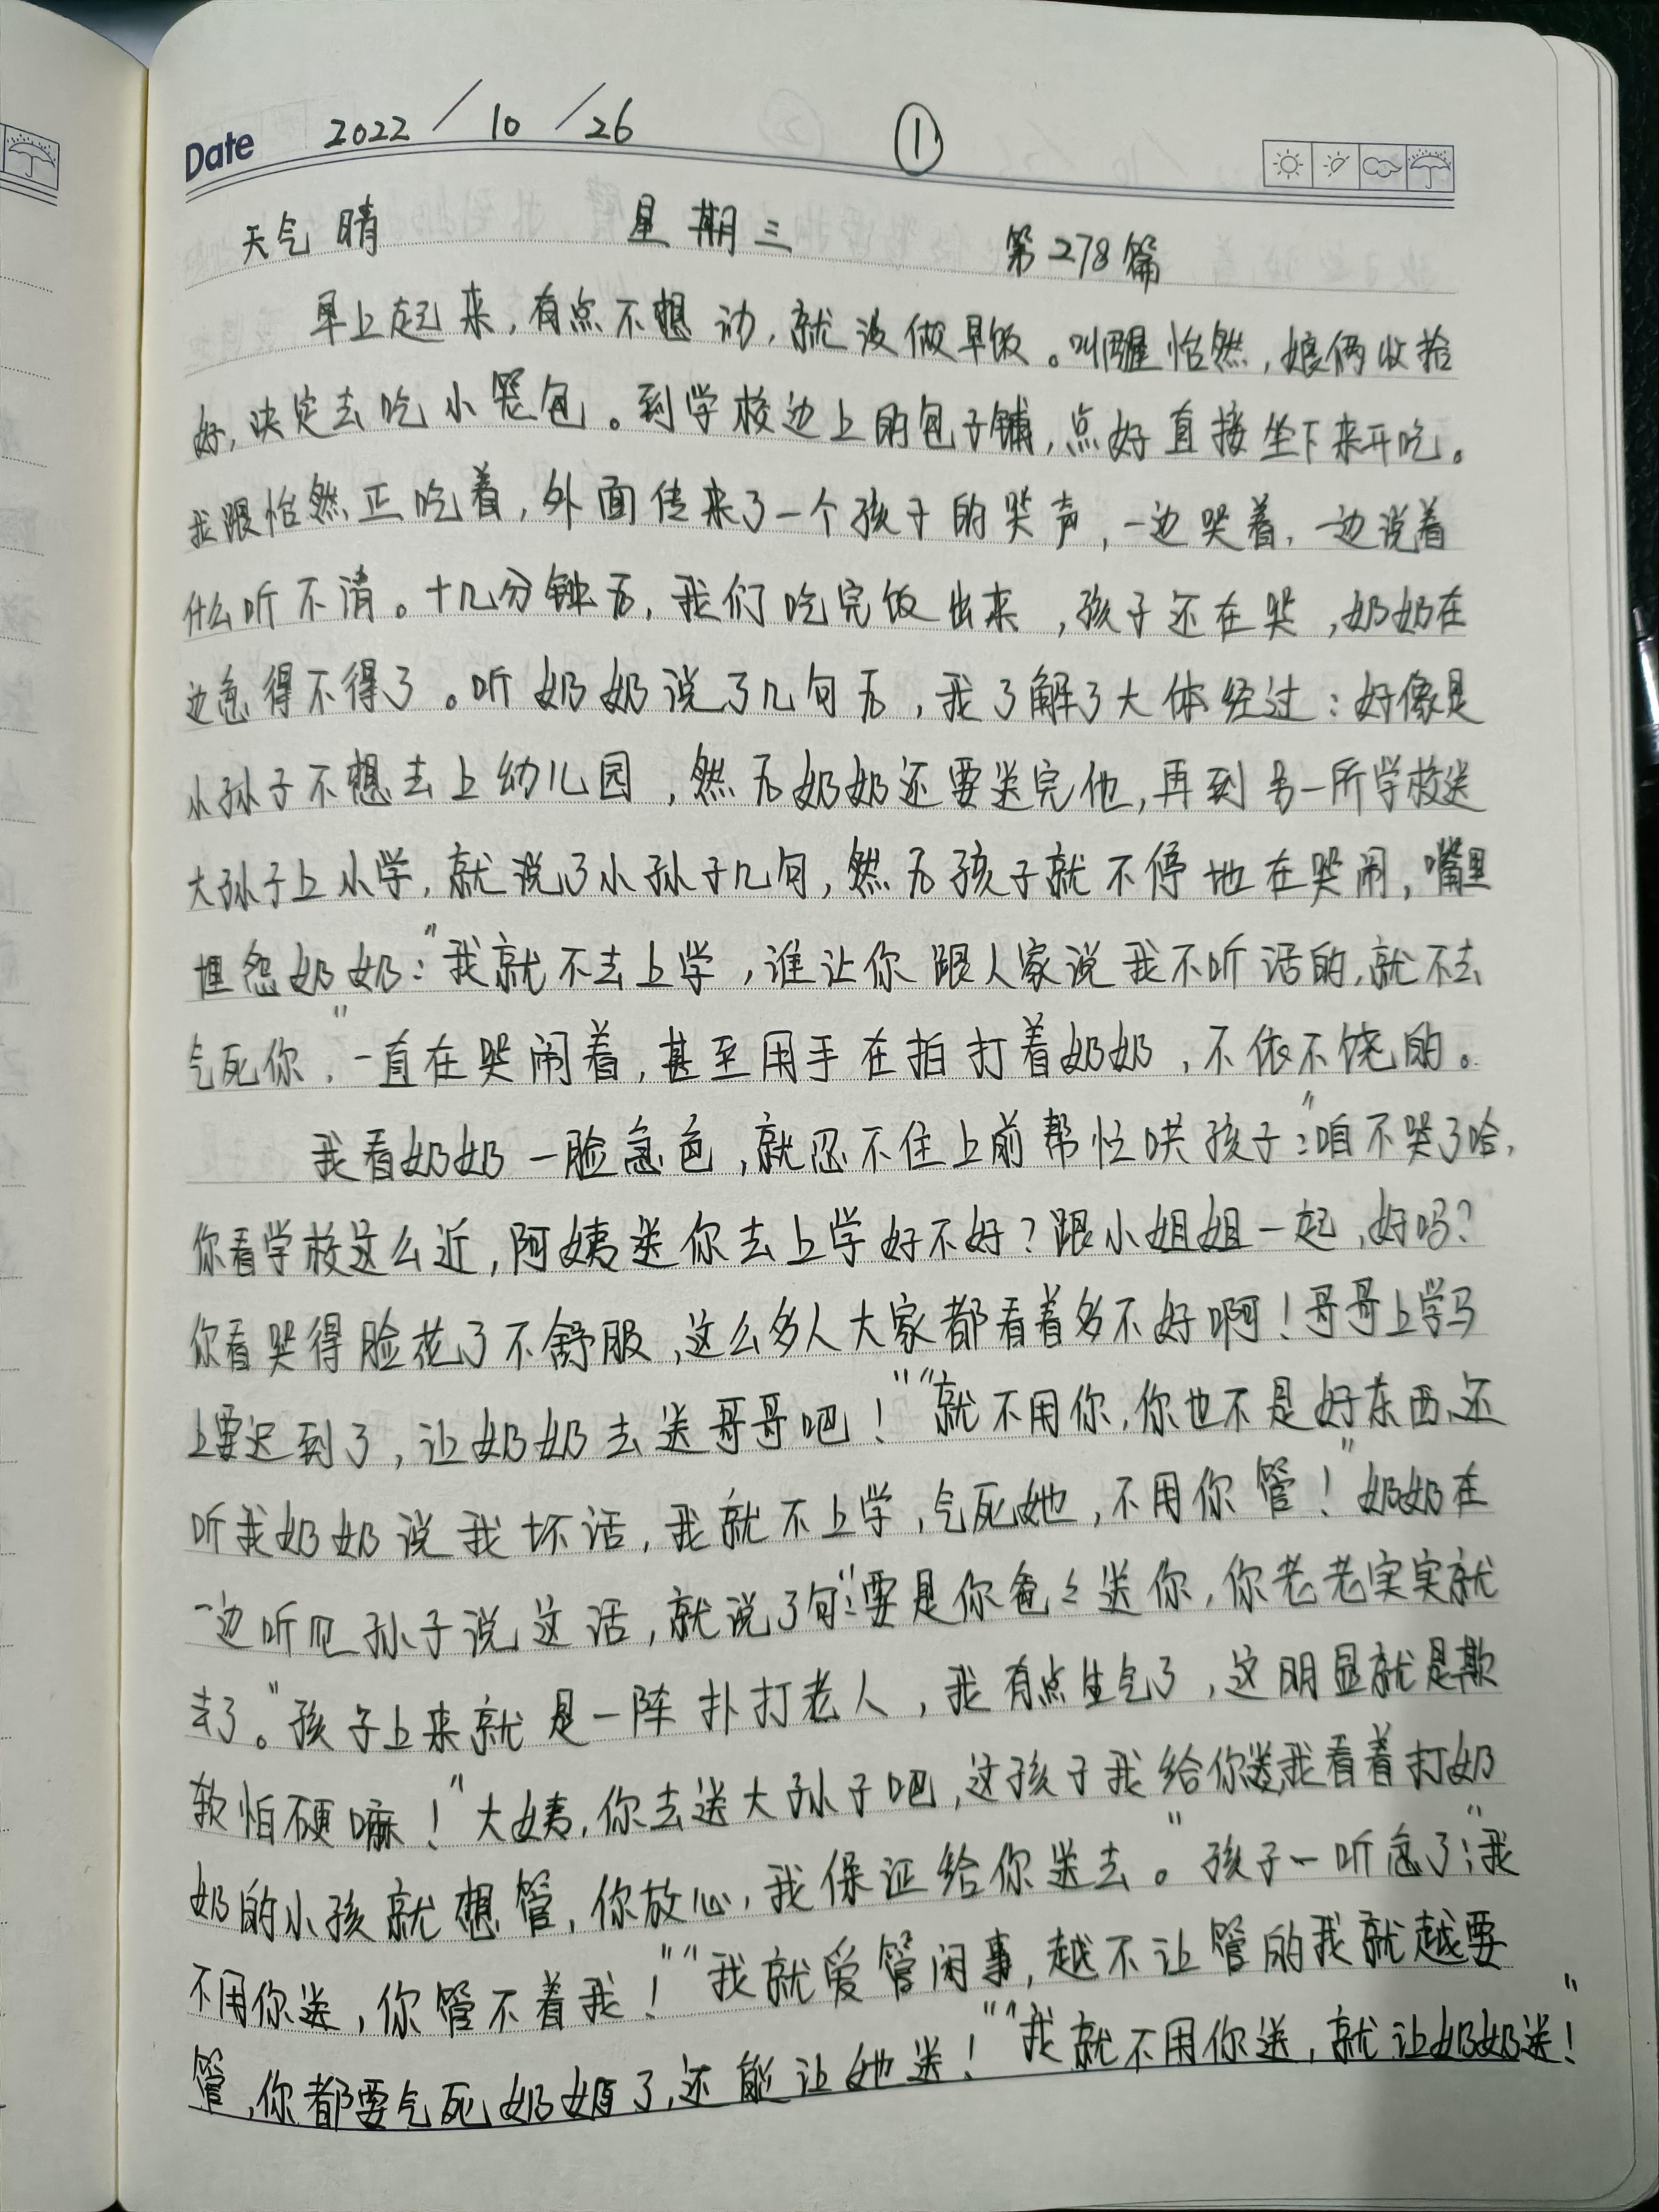 Date 2022/10/26 ①
天气晴 星期三 第278篇
早上起来,有点不想动,就没做早饭。叫醒怡然,娘俩收拾
好,决定去吃小笼包。到学校边上的包子铺,点好直接坐下来开吃。
我跟怡然正吃着,外面传来了一个孩子的哭声,一边哭着,一边说着
什么听不清。十几分钟后,我们吃完饭出来,孩子还在哭,奶奶在
边急得不得了。听奶奶说了几句后,我了解了大体经过:好像是
小孙子不想去上幼儿园,然后奶奶还要送完他,再到另一所学校送
大孙子上小学,就说了小孙子几句,然后孩子就不停地在哭闹,嘴里
埋怨奶奶:"我就不去上学,谁让你跟人家说我不听话的,就不去
气死你,"一直在哭闹着,甚至用手在拍打着奶奶,不依不饶的。
我看奶奶一脸急色,就忍不住上前帮忙哄孩子:"咱不哭了哈,
你看学校这么近,阿姨送你去上学好不好?跟小姐姐一起,好吗?
你看哭得脸花了不舒服,这么多人大家都看着多不好啊!哥哥上学马
上要迟到了,让奶奶去送哥哥吧!""就不用你,你也不是好东西,还
听我奶奶说我坏话,我就不上学,气死她,不用你管!"奶奶在
一边听见孙子说这话,就说了句:"要是你爸爸送你,你老老实实就
去了。"孩子上来就是一阵扑打老人,我有点生气了,这明显就是欺
软怕硬嘛!"大姨,你去送大孙子吧,这孩子我给你送,我看着打奶
奶的小孩就想管,你放心,我保证给你送去。"孩子一听急了:"我
不用你送,你管不着我!""我就爱管闲事,越不让管的我就越要
管,你都要气死奶奶了,还能让她送!""我就不用你送,就让奶奶送!"